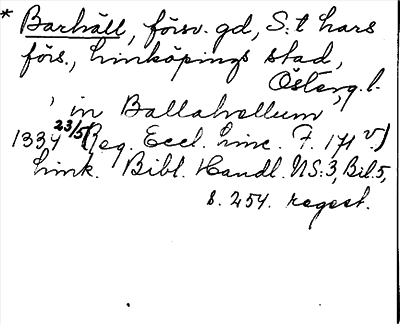 * Barhäll, försv. gd, S:t Lars
förs., Linköpings stad,
Österg.l.
, in Ballahellum,
1334 23/5 (Reg. Eccl. Linc. F. 171 v.)
Link. Bibl. Handl. NS:3, Bil. 5,
s. 254. regest.